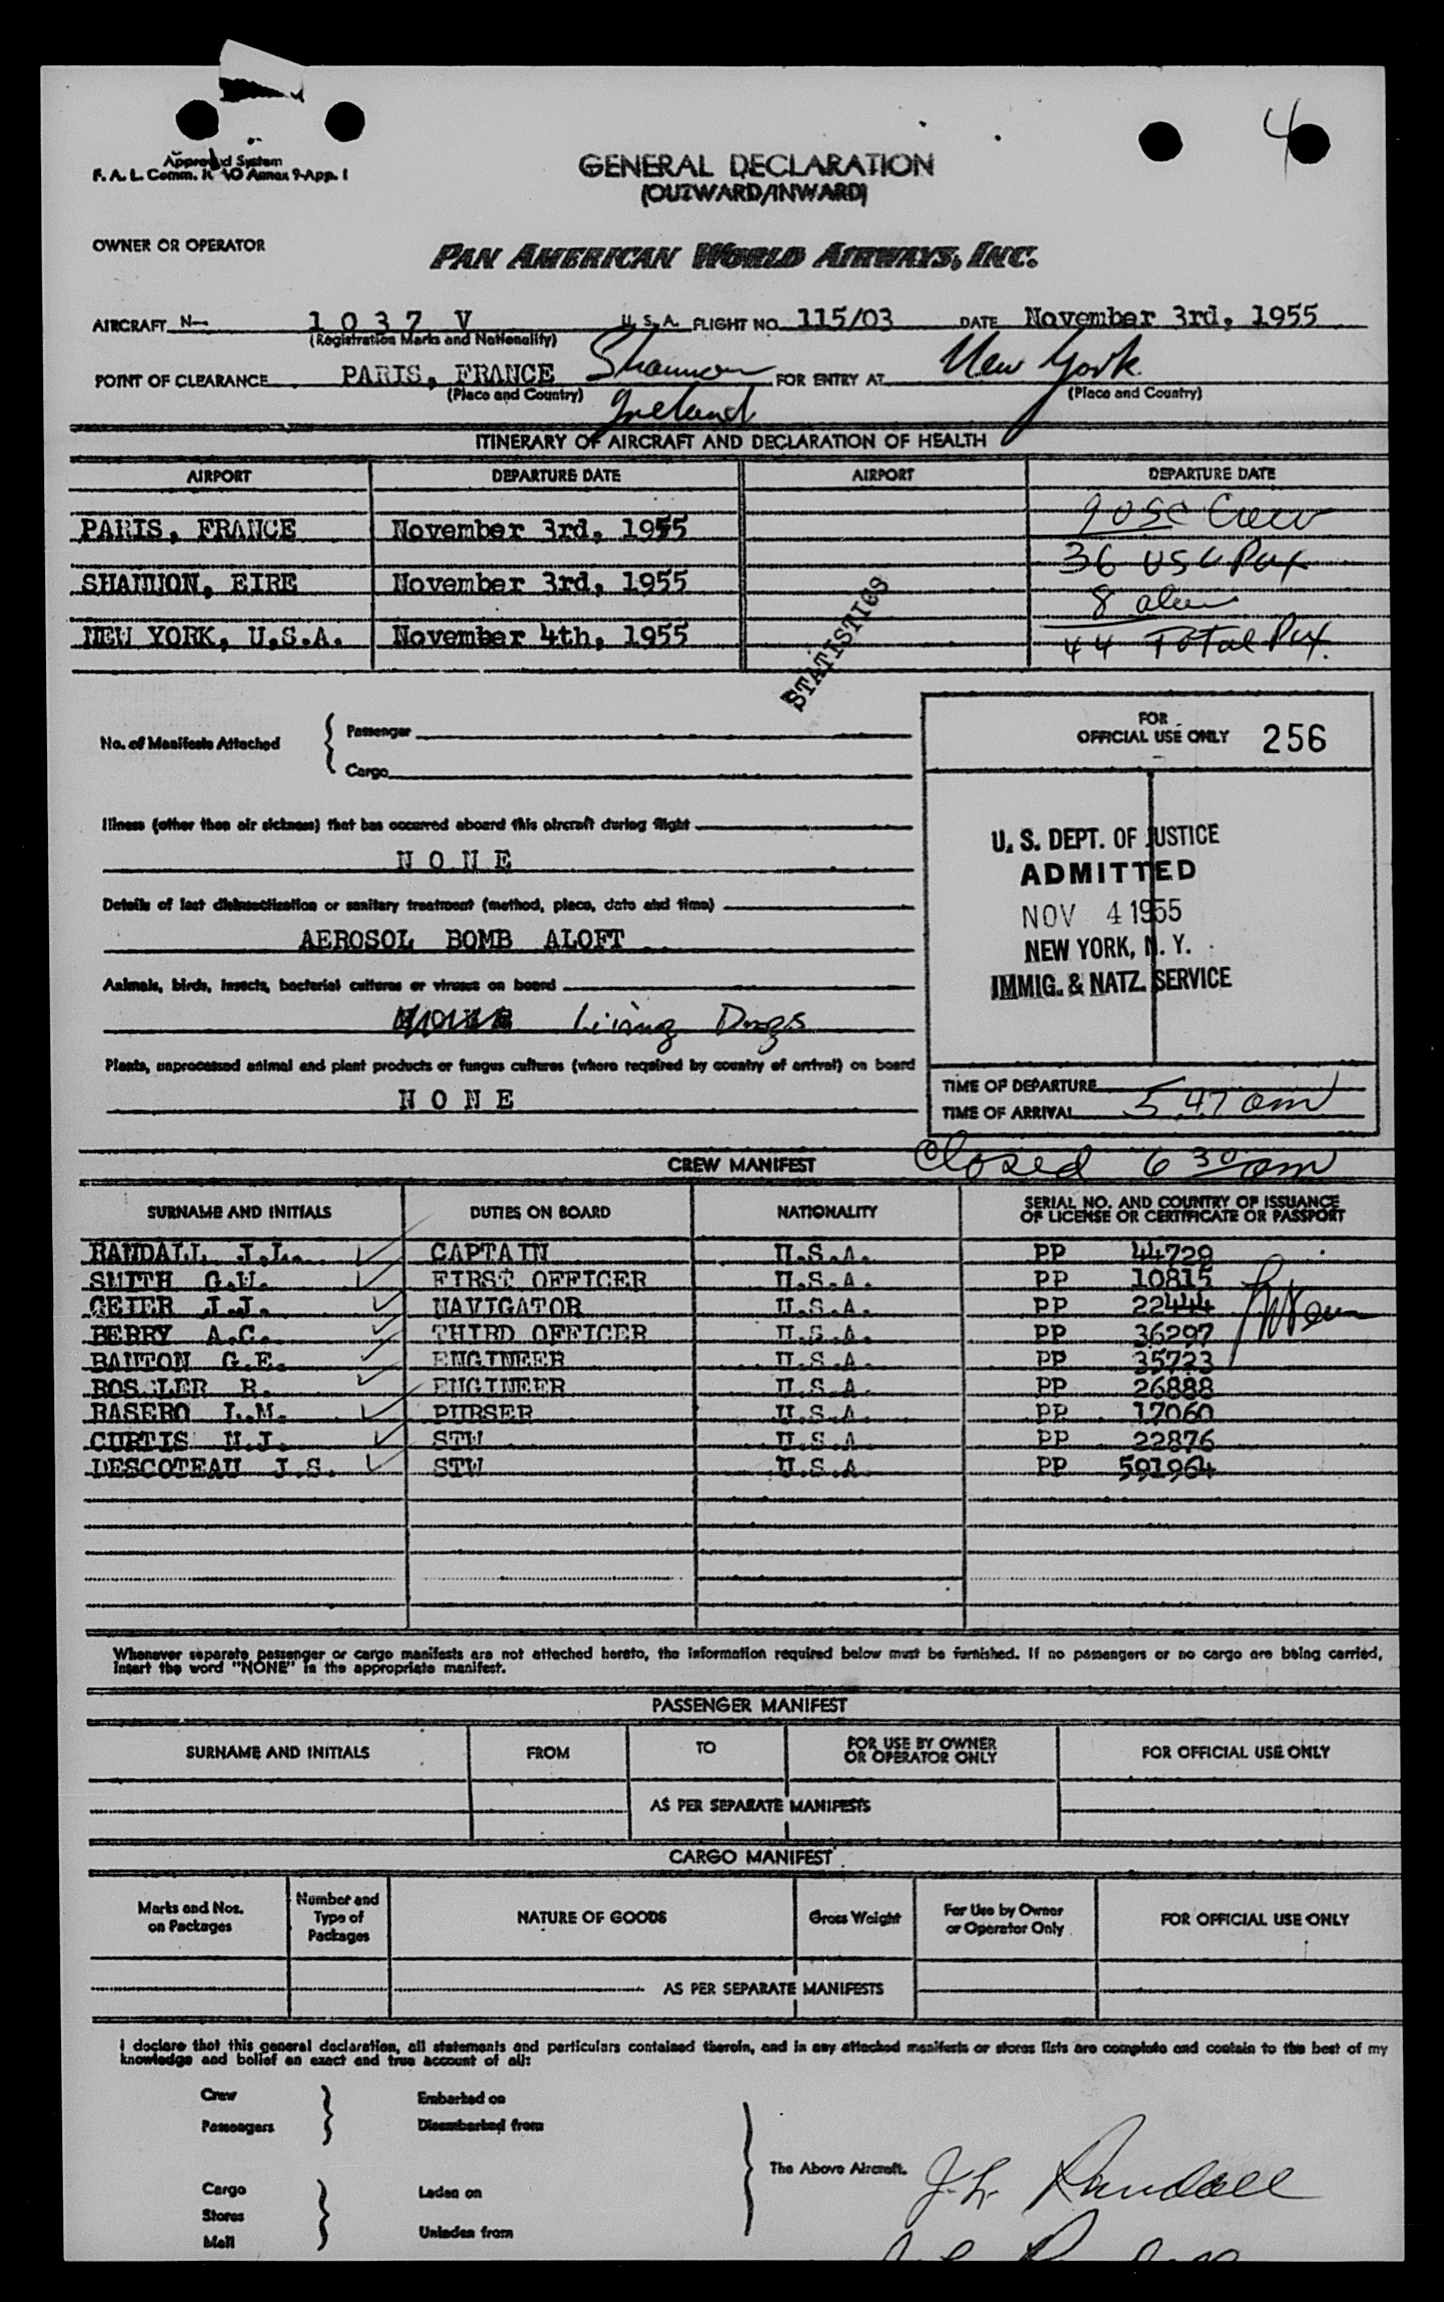 4
Approved System
F. A. L. Comm. ICAO Annex 9-App. 1
GENERAL DECLARATION
(OUTWARD/INWARD)
OWNER OR OPERATOR
PAN AMERICAN WORLD AIRWAYS, INC.
AIRCRAFT N- 1 0 3 7 V U.S.A. FLIGHT NO. 115/03 DATE November 3rd, 1955
(Registration Marks and Nationality)
POINT OF CLEARANCE PARIS, FRANCE Shannon FOR ENTRY AT New York
(Place and Country) Ireland (Place and Country)
ITINERARY OF AIRCRAFT AND DECLARATION OF HEALTH
AIRPORT DEPARTURE DATE AIRPORT DEPARTURE DATE
9 USC Crew
PARIS, FRANCE November 3rd, 1955
36 USC Pax
SHANNON, EIRE November 3rd, 1955
8 alien
NEW YORK, U.S.A. November 4th, 1955
44 Total Pax.
STATISTICS
No. of Manifests Attached { Passenger
Cargo
FOR
OFFICIAL USE ONLY 256
Illness (other than air sickness) that has occurred aboard this aircraft during flight
N O N E
Details of last disinsectization or sanitary treatment (method, place, date and time)
AEROSOL BOMB ALOFT
Animals, birds, insects, bacterial cultures or viruses on board
Living Dogs
Plants, unprocessed animal and plant products or fungus cultures (where required by country of arrival) on board
N O N E
U. S. DEPT. OF JUSTICE
ADMITTED
NOV 4 1955
NEW YORK, N. Y.
IMMIG. & NATZ. SERVICE
TIME OF DEPARTURE
TIME OF ARRIVAL 5 47 am
Closed 6 30 am
CREW MANIFEST
SURNAME AND INITIALS DUTIES ON BOARD NATIONALITY SERIAL NO. AND COUNTRY OF ISSUANCE
OF LICENSE OR CERTIFICATE OR PASSPORT
RANDALL J.L. CAPTAIN U.S.A. PP 44729
SMITH G.W. FIRST OFFICER U.S.A. PP 10815
GEIER J.J. NAVIGATOR U.S.A. PP 22444
BERRY A.C. THIRD OFFICER U.S.A. PP 36297
BANTON G.E. ENGINEER U.S.A. PP 35723
BOSSLER R. ENGINEER U.S.A. PP 26888
BASERO L.M. PURSER U.S.A. PP 17060
CURTIS W.J. STW U.S.A PP 22876
DESCOTEAU J.S. STW U.S.A PP 591964
Whenever separate passenger or cargo manifests are not attached hereto, the information required below must be furnished. If no passengers or no cargo are being carried,
insert the word "NONE" in the appropriate manifest.
PASSENGER MANIFEST
SURNAME AND INITIALS FROM TO FOR USE BY OWNER
OR OPERATOR ONLY FOR OFFICIAL USE ONLY
AS PER SEPARATE MANIFESTS
CARGO MANIFEST
Marks and Nos.
on Packages Number and
Type of
Packages NATURE OF GOODS Gross Weight For Use by Owner
or Operator Only FOR OFFICIAL USE ONLY
AS PER SEPARATE MANIFESTS
I declare that this general declaration, all statements and particulars contained therein, and in any attached manifests or stores lists are complete and contain to the best of my
knowledge and belief an exact and true account of all:
Crew Embarked on
Passengers Disembarked from
The Above Aircraft. J.L. Randall
Cargo Laden on
Stores
Mail Unladen from